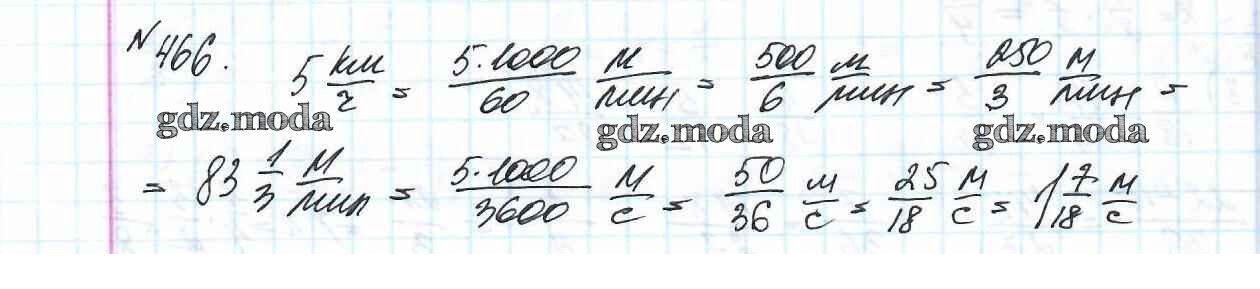 № 466. 5 км/г = 5·1000/60 м/мин = 500/6 м/мин = 250/3 м/мин =
gdz.moda gdz.moda gdz.moda
= 83 1/3 м/мин = 5·1000/3600 м/с = 50/36 м/с = 25/18 м/с = 1 7/18 м/с